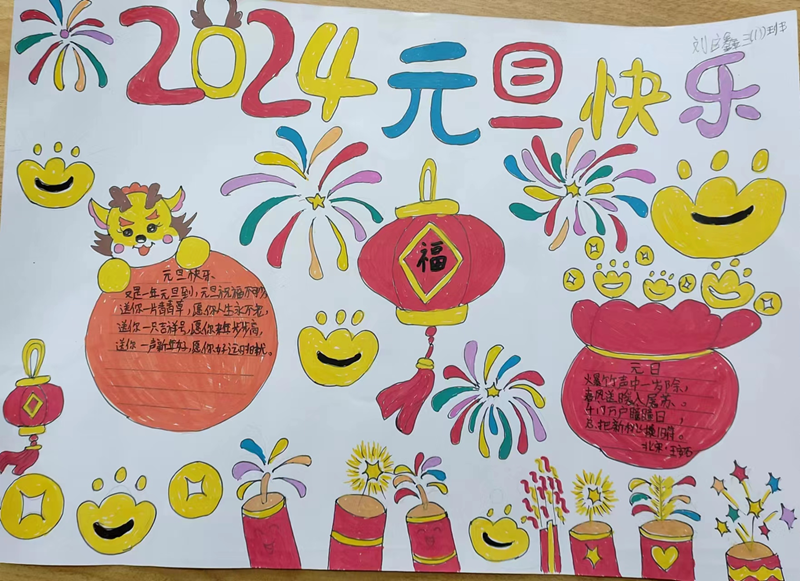 2024元旦快乐
三(1)班
福
元旦快乐
又是一年元旦到,元旦祝福不可少,
送你一片青青草,愿你人生永不老,
送你一只吉祥号,愿你来年步步高,
送你一声新年好,愿你好运相拥抱。
元日
爆竹声中一岁除,
春风送暖入屠苏。
千门万户曈曈日,
总把新桃换旧符。
北宋·王安石